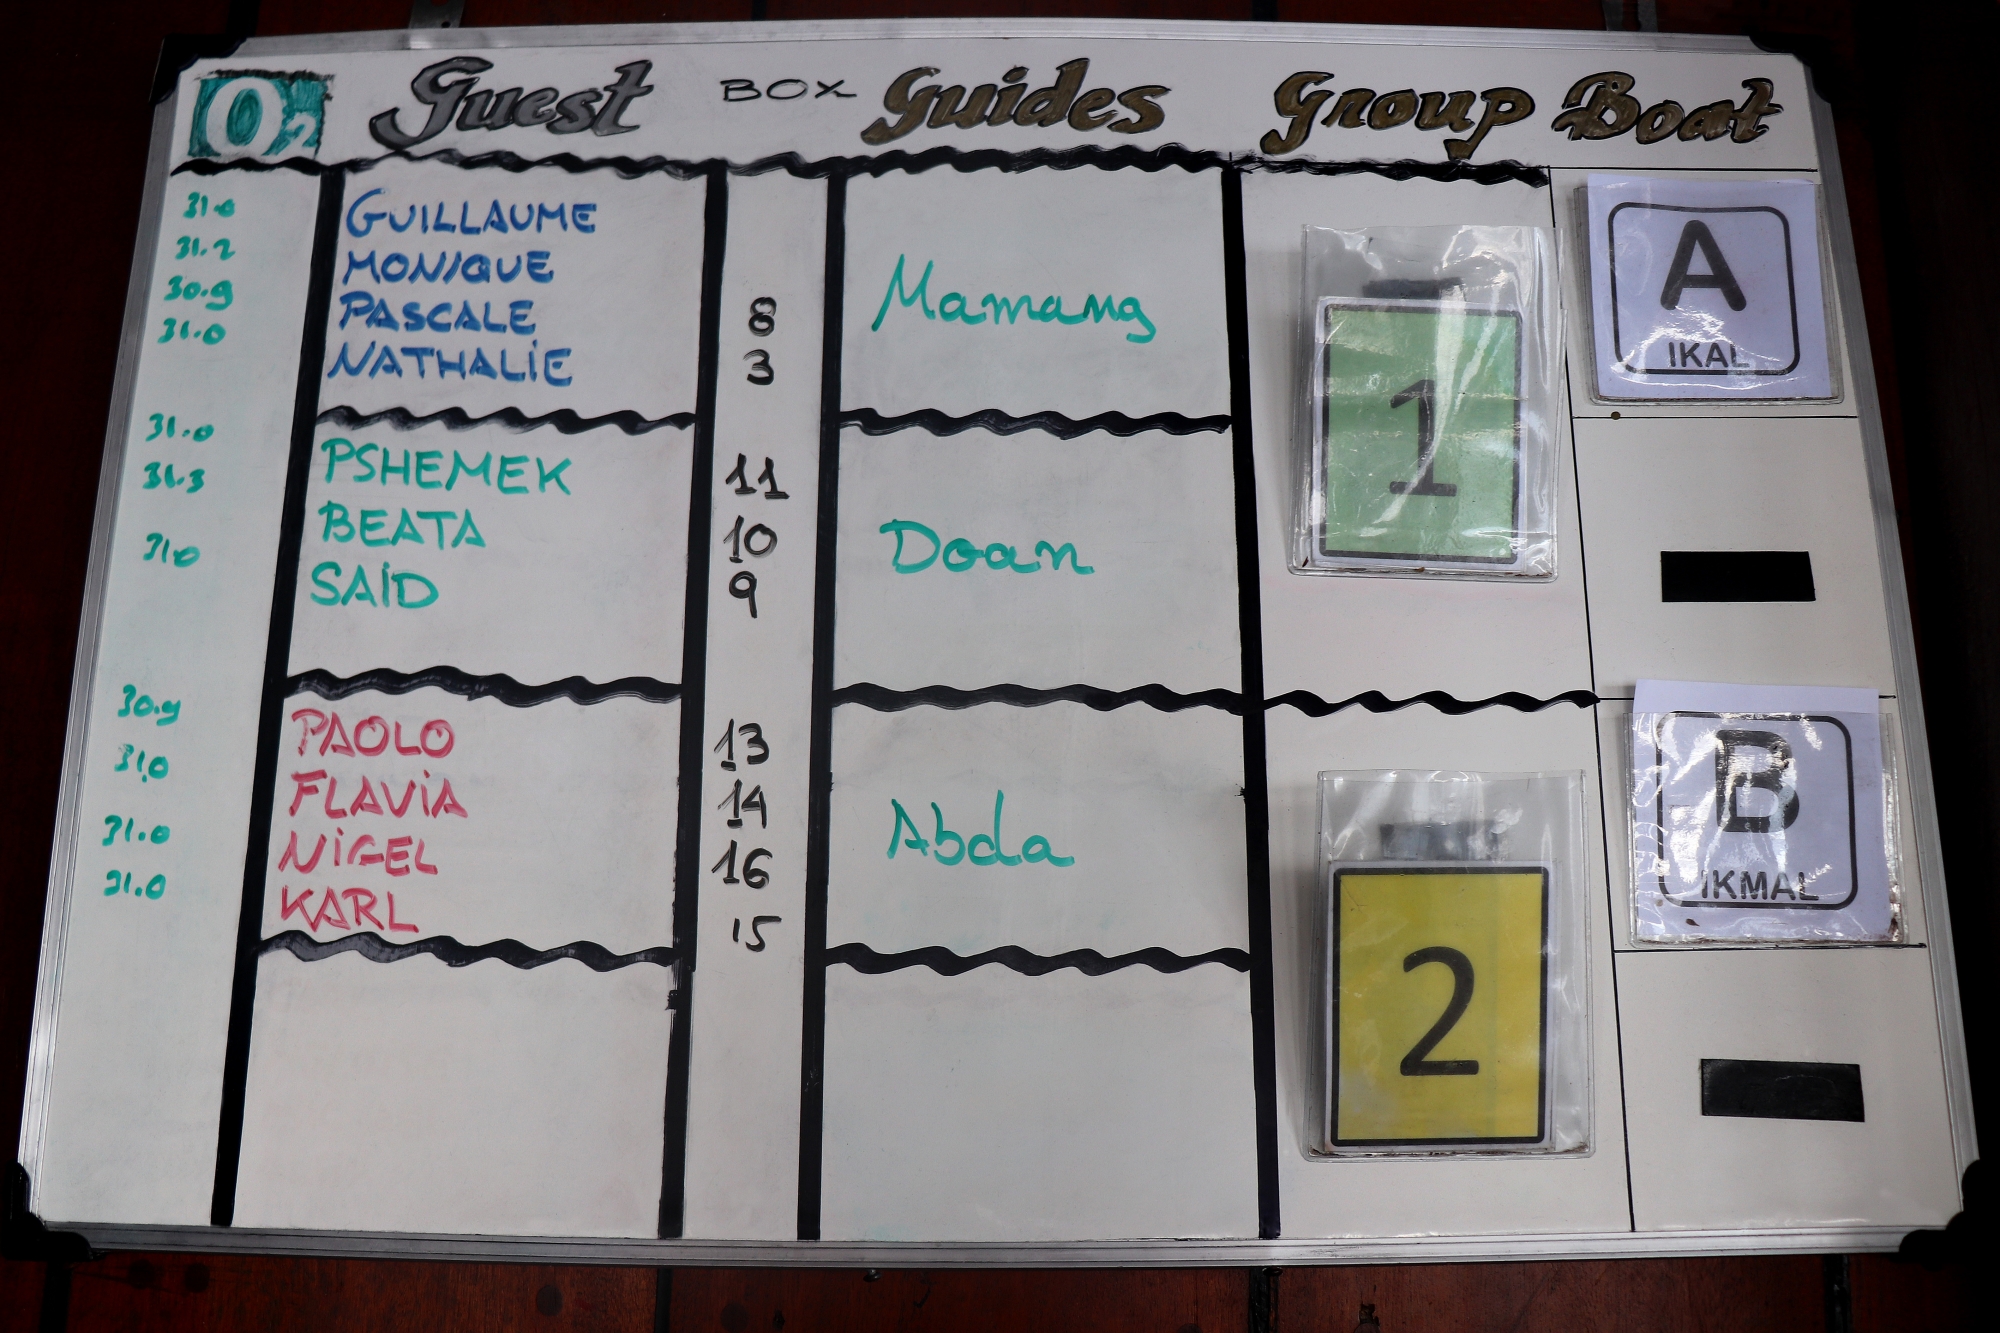 O2 Guest BOX Guides Group Boat
31.0 GUILLAUME
31.2 MONIQUE
30.9 PASCALE 8
31.0 NATHALIE 3
Mamang
1
A
IKAL
31.0 PSHEMEK 11
31.3 BEATA 10
31.0 SAID 9
Doan
30.9 PAOLO 13
31.0 FLAVIA 14
31.0 NIGEL 16
31.0 KARL 15
Abda
2
B
IKMAL